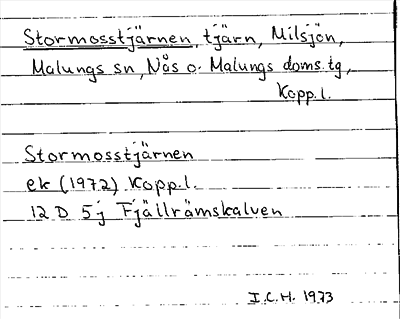 Stormosstjärnen, tjärn, Milsjön,
Malungs sn, Nås o. Malungs doms.tg,
Kopp.l.
Stormosstjärnen
ek (1972) Kopp.l.
12 D 5j Fjällrämskalven
I.C.H. 1973